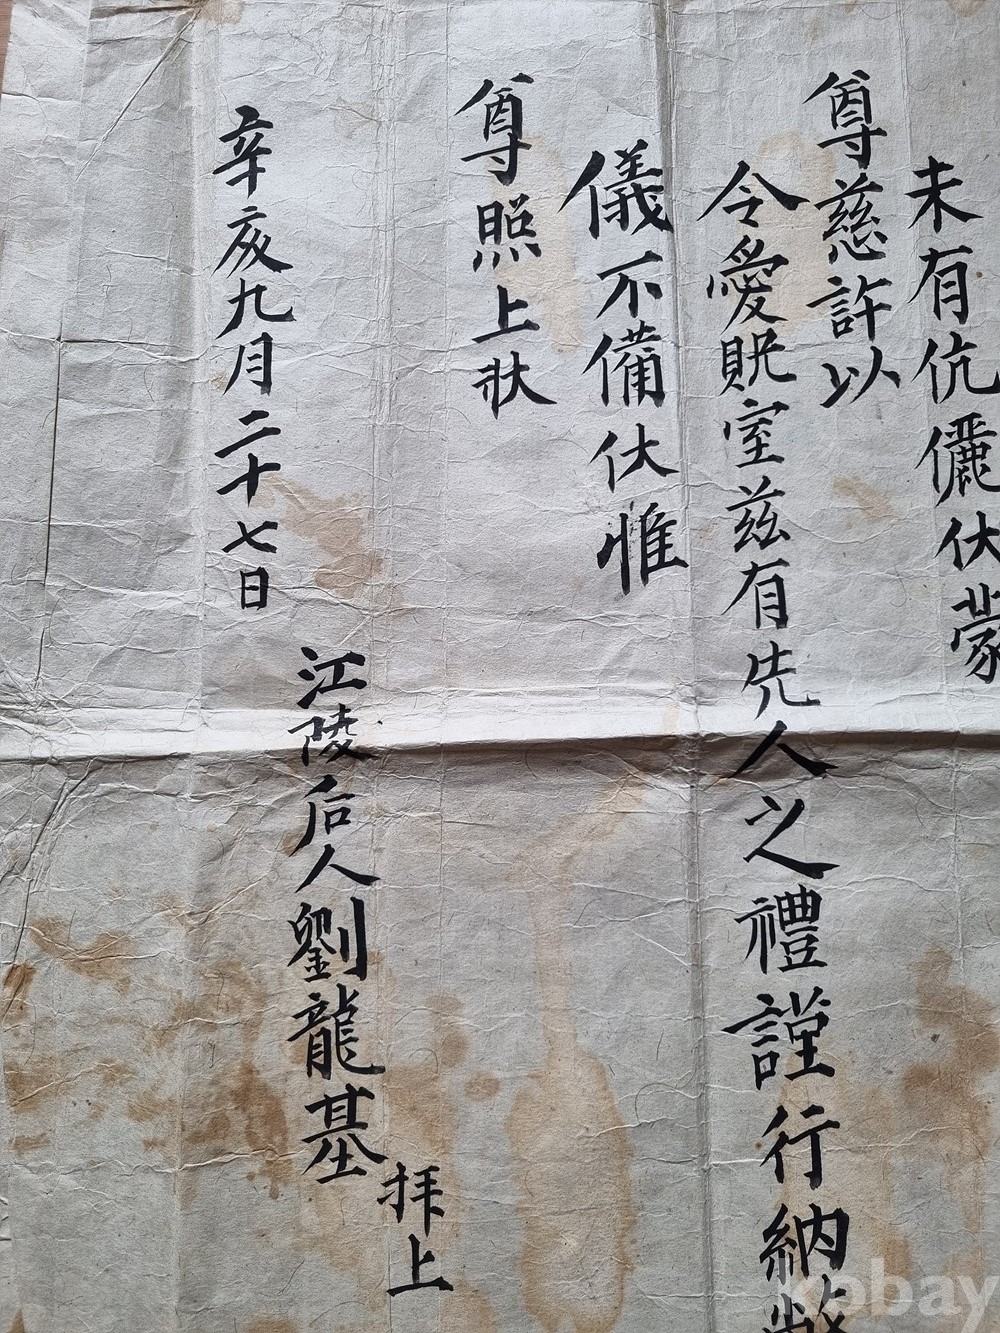 未有伉儷伏蒙
尊慈許以
令愛貺室茲有先人之禮謹行納幣
儀不備伏惟
尊照上狀
辛亥九月二十七日
江陵后人劉龍基
拝上
kobay